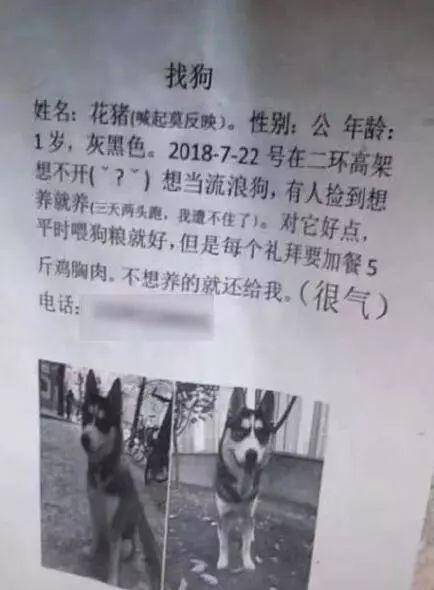 找狗
姓名：花猪(喊起莫反映)。性别：公 年龄：
1岁，灰黑色。2018-7-22 号在二环高架
想不开(ˇ？ˇ) 想当流浪狗，有人捡到想
养就养(三天两头跑，我遭不住了)。对它好点，
平时喂狗粮就好，但是每个礼拜要加餐 5
斤鸡胸肉。不想养的就还给我。(很气)
电话：